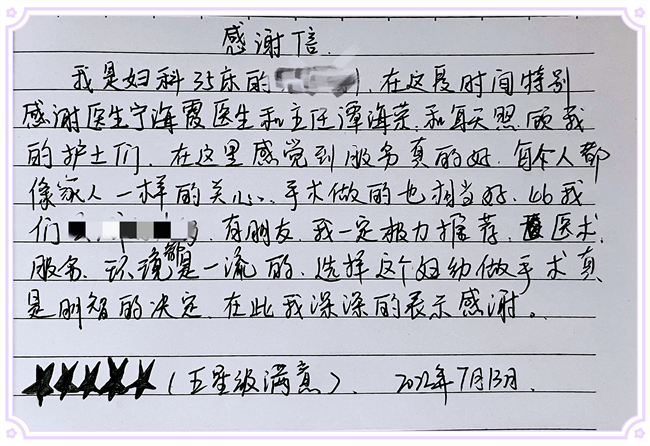 感谢信
我是妇科35床的 在这段时间特别
感谢医生宁海霞医生和主任谭海荣、和每天照顾我
的护士们 在这里感觉到服务真的好、每个人都
像家人一样的关心、手术做的也相当好、比我
们 有朋友、我一定极力推荐、医术、
服务、环境都是一流的、选择这个妇幼做手术真
是明智的决定、在此我深深的表示感谢。
★★★★★(五星级满意)、 2022年7月13日、